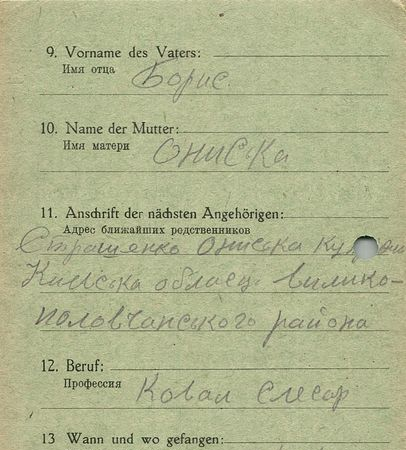 9. Vorname des Vaters:
Имя отца
Борис.
10. Name der Mutter:
Имя матери
Ониська
11. Anschrift der nächsten Angehörigen:
Адрес ближайших родственников
Страшенко Ониська
Киівська область вилико-
половчанського района
12. Beruf:
Профессия
Ковал Слесар
13 Wann und wo gefangen: